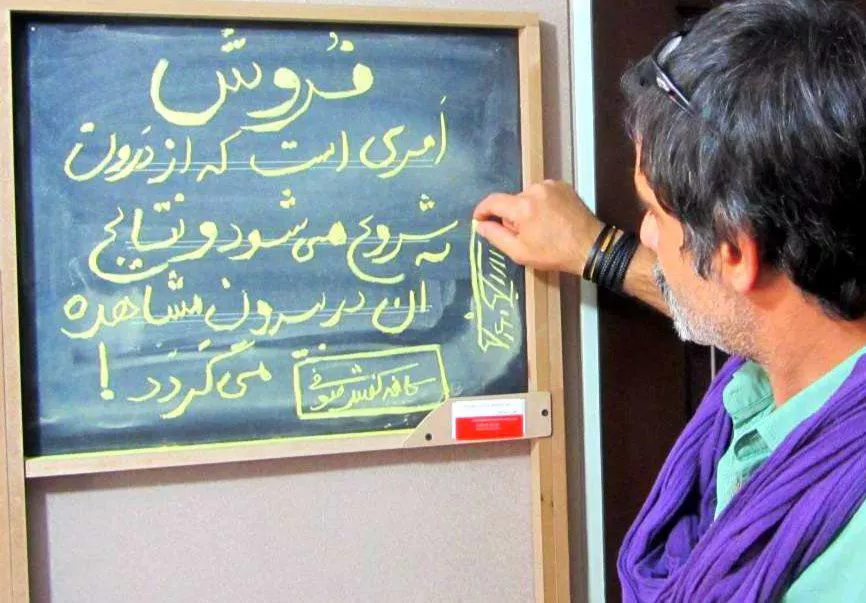 فُروش
اَمری است که از دَرون
به شروع می‌شود و نتایج
آن در بیرون مشاهده
می‌گردَد !
کافه کفش صوفی